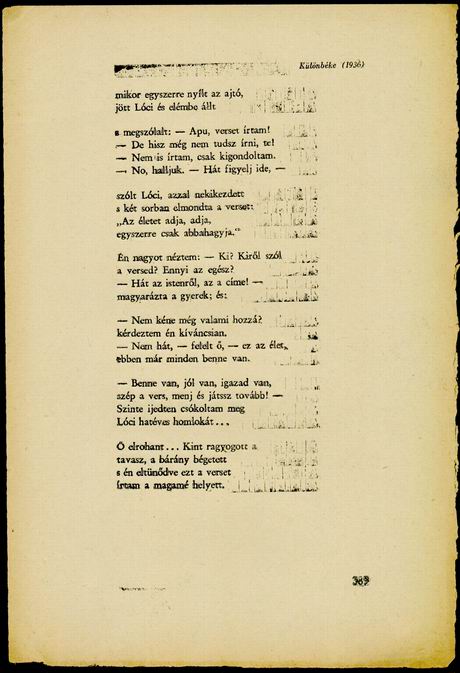 Különbéke (1936)
mikor egyszerre nyílt az ajtó,
jött Lóci és elémbe állt
s megszólalt: — Apu, verset írtam!
— De hisz még nem tudsz írni, te!
— Nem is írtam, csak kigondoltam.
— No, halljuk. — Hát figyelj ide, —
szólt Lóci, azzal nekikezdett
s két sorban elmondta a verset:
„Az életet adja, adja,
egyszerre csak abbahagyja.“
Én nagyot néztem: — Ki? Kiről szól
a versed? Ennyi az egész?
— Hát az istenről, az a címe! —
magyarázta a gyerek; és:
— Nem kéne még valami hozzá?
kérdeztem én kíváncsian.
— Nem hát, — felelt ő, — ez az élet,
ebben már minden benne van.
— Benne van, jól van, igazad van,
szép a vers, menj és játssz tovább! —
Szinte ijedten csókoltam meg
Lóci hatéves homlokát...
Ő elrohant... Kint ragyogott a
tavasz, a bárány bégetett
s én eltünődve ezt a verset
írtam a magamé helyett.